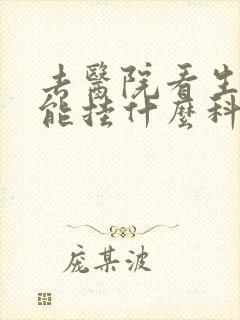 去醫院看生
能挂什麽科
庞某波